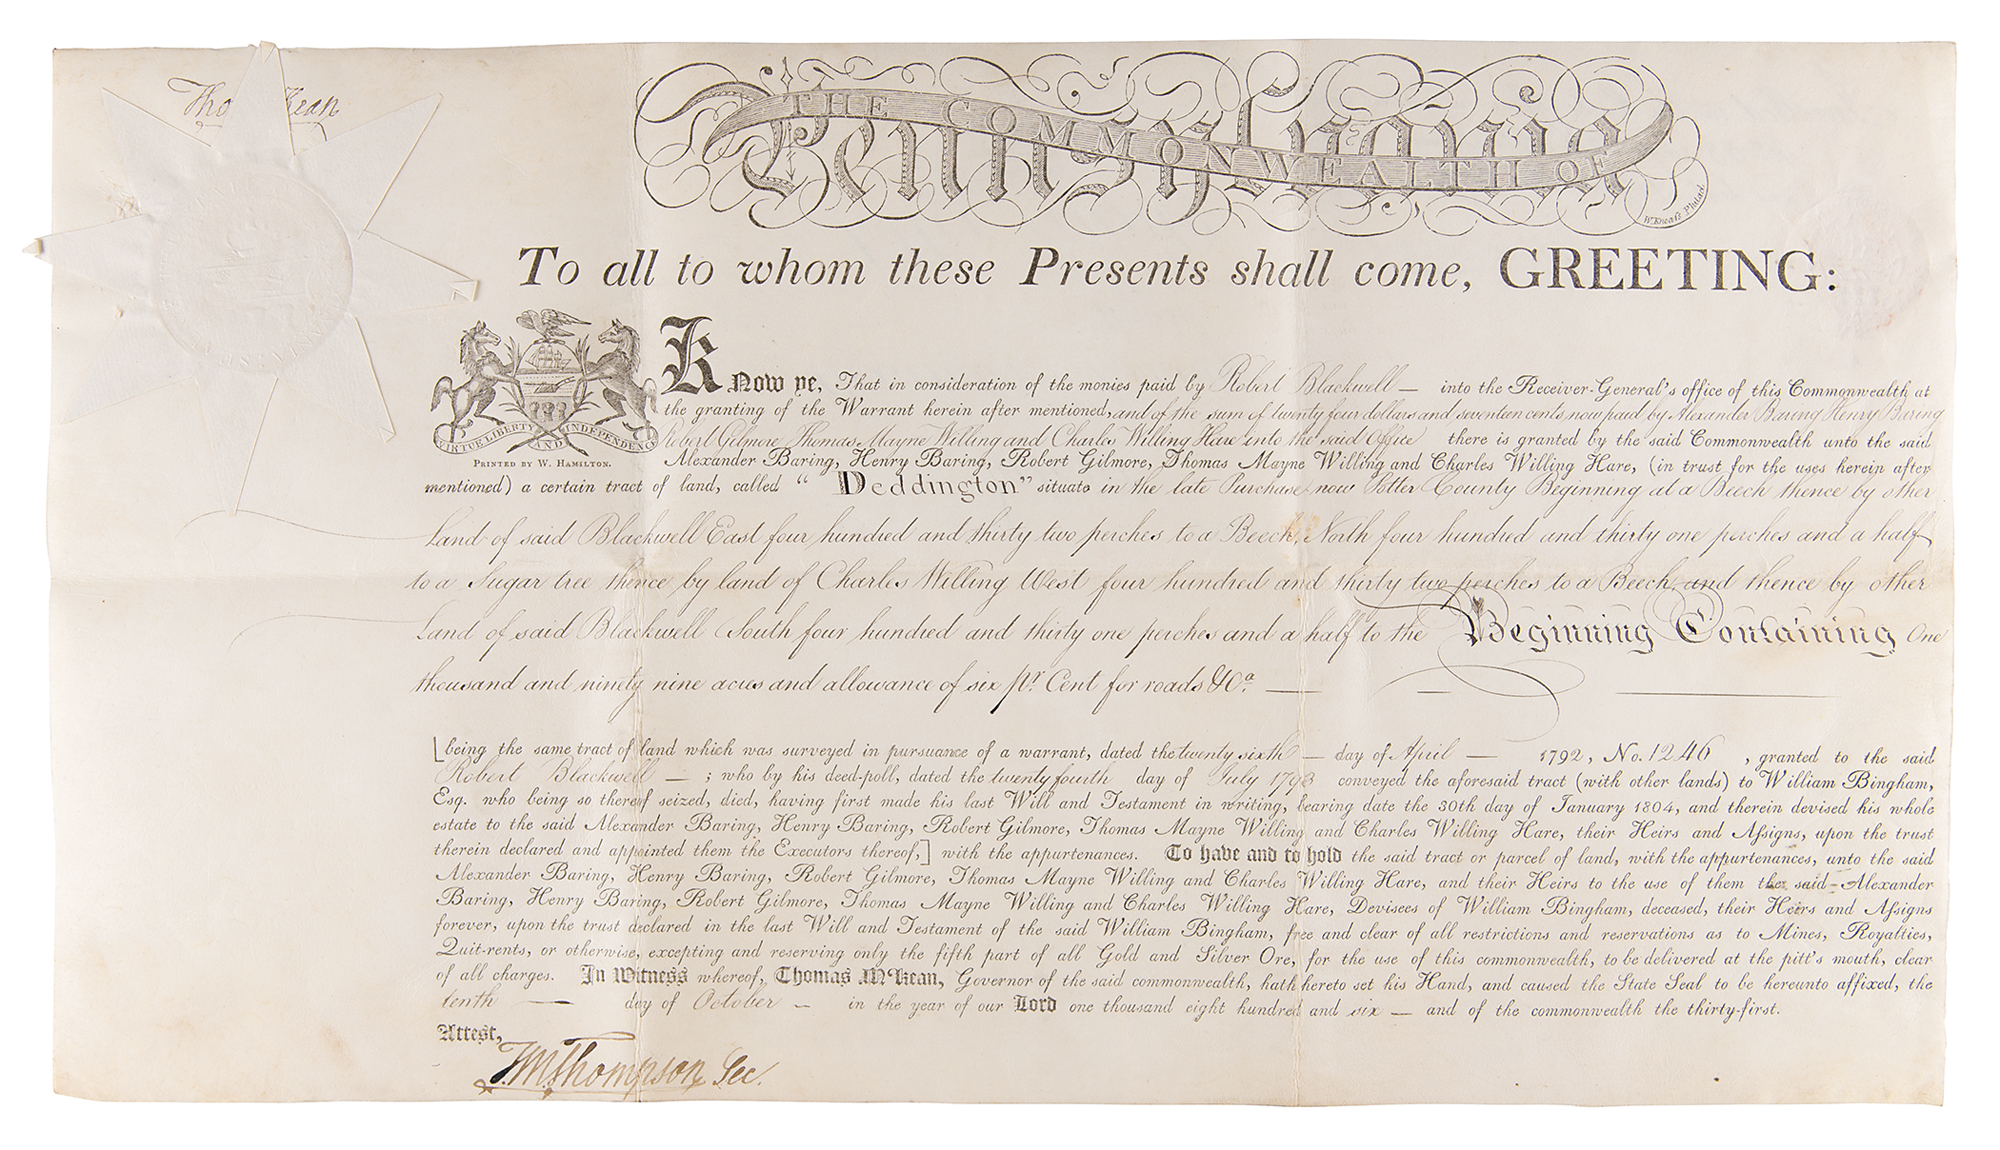 Tho M:Kean
THE COMMONWEALTH OF
Pennsylvania
W. Kneass Philad.
To all to whom these Presents shall come, GREETING:
VIRTUE LIBERTY AND INDEPENDENCE
PRINTED BY W. HAMILTON.
Know ye, That in consideration of the monies paid by Robert Blackwell — into the Receiver-General's office of this Commonwealth at
the granting of the Warrant herein after mentioned, and of the sum of twenty four dollars and seventeen cents now paid by Alexander Baring Henry Baring
Robert Gilmore Thomas Mayne Willing and Charles Willing Hare into the said Office there is granted by the said Commonwealth unto the said
Alexander Baring, Henry Baring, Robert Gilmore, Thomas Mayne Willing and Charles Willing Hare, (in trust for the uses herein after
mentioned) a certain tract of land, called “ Deddington” situate in the late Purchase now Potter County Beginning at a Beech thence by other
Land of said Blackwell East four hundred and thirty two perches to a Beech, North four hundred and thirty one perches and a half
to a Sugar tree thence by land of Charles Willing West four hundred and thirty two perches to a Beech and thence by other
Land of said Blackwell South four hundred and thirty one perches and a half to the Beginning Containing One
thousand and ninety nine acres and allowance of six pr. Cent for roads &Ca. —
[being the same tract of land which was surveyed in pursuance of a warrant, dated the twenty sixth — day of April — 1792, No. 1246 , granted to the said
Robert Blackwell — ; who by his deed-poll, dated the twenty fourth day of July 1793 conveyed the aforesaid tract (with other lands) to William Bingham,
Esq. who being so thereof seized, died, having first made his last Will and Testament in writing, bearing date the 30th day of January 1804, and therein devised his whole
estate to the said Alexander Baring, Henry Baring, Robert Gilmore, Thomas Mayne Willing and Charles Willing Hare, their Heirs and Aſsigns, upon the trust
therein declared and appointed them the Executors thereof,] with the appurtenances. To have and to hold the said tract or parcel of land, with the appurtenances, unto the said
Alexander Baring, Henry Baring, Robert Gilmore, Thomas Mayne Willing and Charles Willing Hare, and their Heirs to the use of them the said Alexander
Baring, Henry Baring, Robert Gilmore, Thomas Mayne Willing and Charles Willing Hare, Devisees of William Bingham, deceased, their Heirs and Aſsigns
forever, upon the trust declared in the last Will and Testament of the said William Bingham, free and clear of all restrictions and reservations as to Mines, Royalties,
Quit-rents, or otherwise, excepting and reserving only the fifth part of all Gold and Silver Ore, for the use of this commonwealth, to be delivered at the pitt's mouth, clear
of all charges. In Witness whereof, Thomas M'Kean, Governor of the said commonwealth, hath hereto set his Hand, and caused the State Seal to be hereunto affixed, the
tenth — day of October — in the year of our Lord one thousand eight hundred and six — and of the commonwealth the thirty-first.
Attest,
T.M. Thompson Sec.